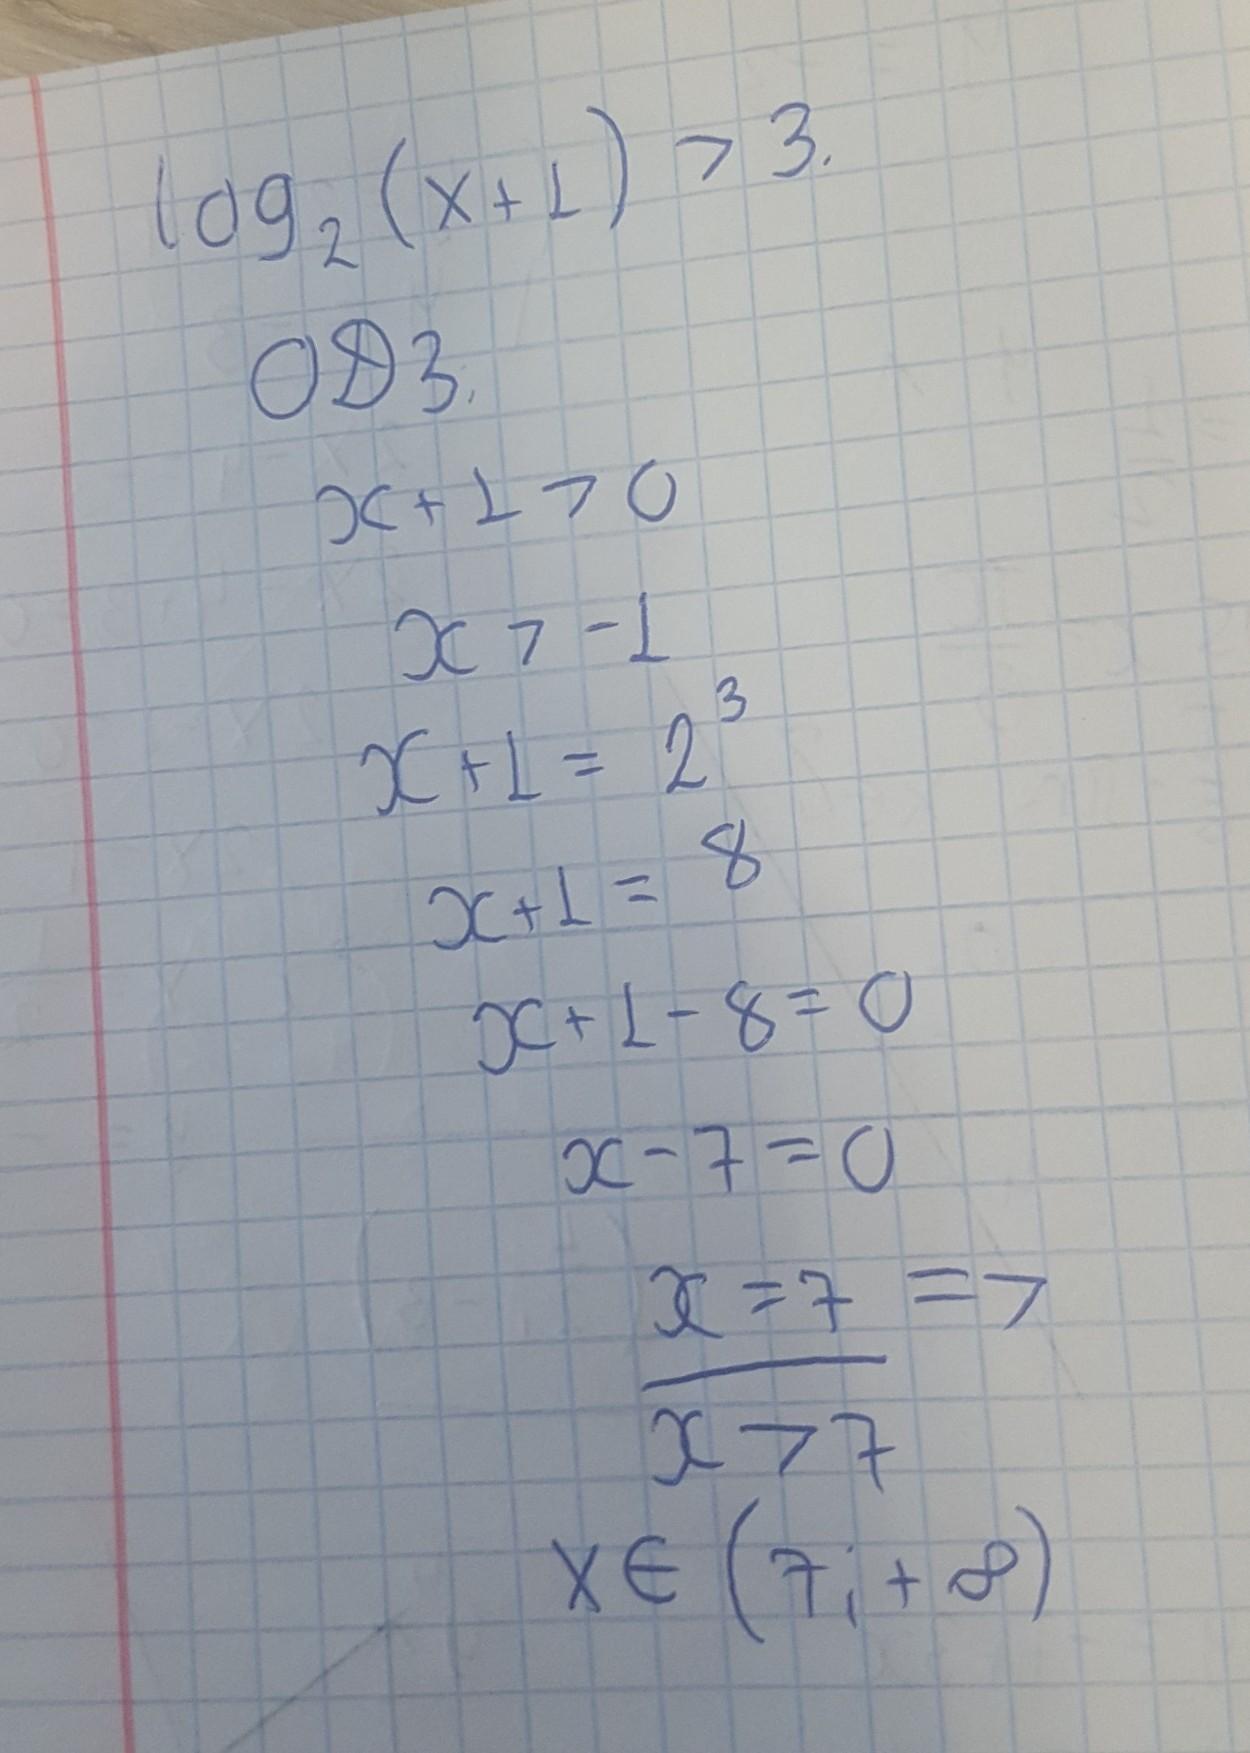 log₂(x+1) > 3.
ОДЗ.
x+1 > 0
x > -1
x+1 = 2³
x+1 = 8
x+1-8=0
x-7=0
x=7 =>
x>7
x∈(7;+∞)